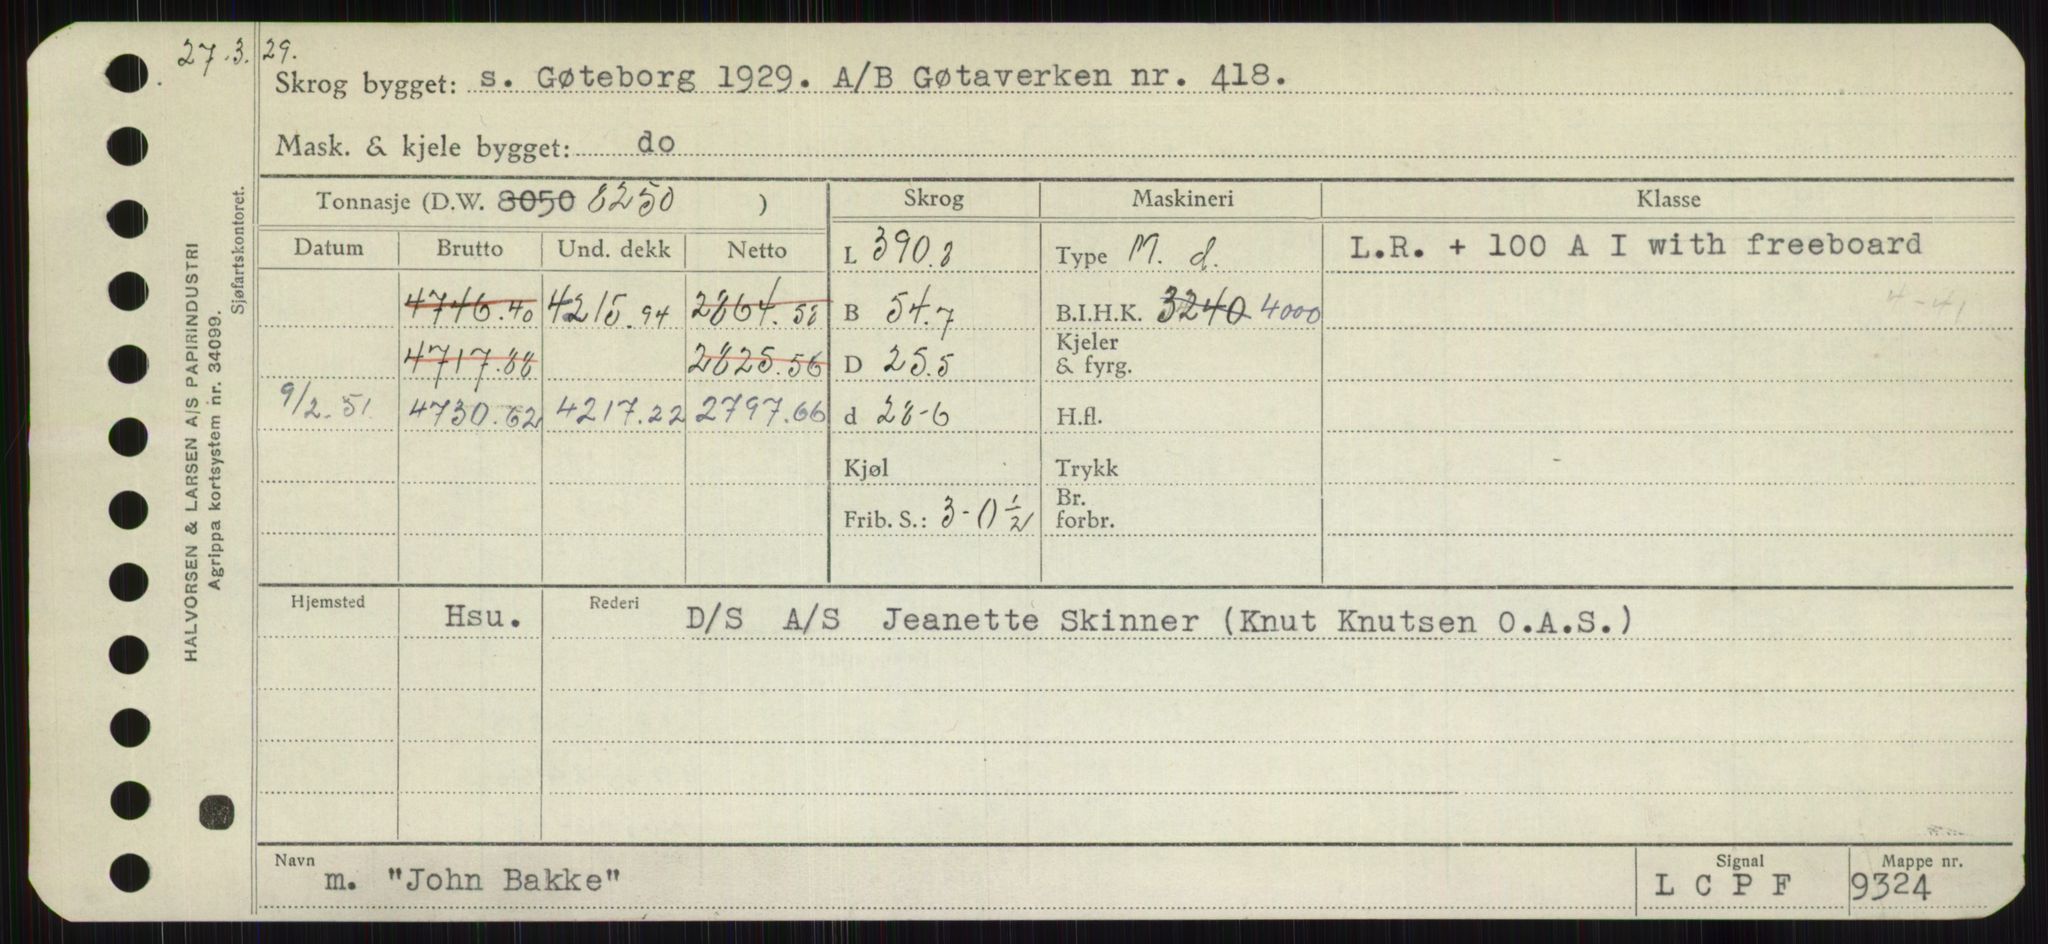 27.3.29.
Skrog bygget: s. Gøteborg 1929. A/B Gøtaverken nr. 418.
Mask. & kjele bygget: do
Tonnasje (D.W. 8050 8250 )
Skrog
Maskineri
Klasse
Datum Brutto Und. dekk Netto
L 390.8
Type M. d.
L.R. + 100 A I with freeboard
4746.40 4215.94 2864.58
B 54.7
B.I.H.K. 3240 4000
4-41
4717.88 2825.56
D 25.5
Kjeler
& fyrg.
9/2.51 4730.62 4217.22 2797.66
d 28-6
H.fl.
Kjøl
Trykk
Frib. S.: 3-0½
Br.
forbr.
Hjemsted Hsu. Rederi D/S A/S Jeanette Skinner (Knut Knutsen O.A.S.)
Navn m. "John Bakke"
Signal
L C P F
Mappe nr.
9324
HALVORSEN & LARSEN A/S PAPIRINDUSTRI
Agrippa kortsystem nr. 34099.
Sjøfartskontoret.